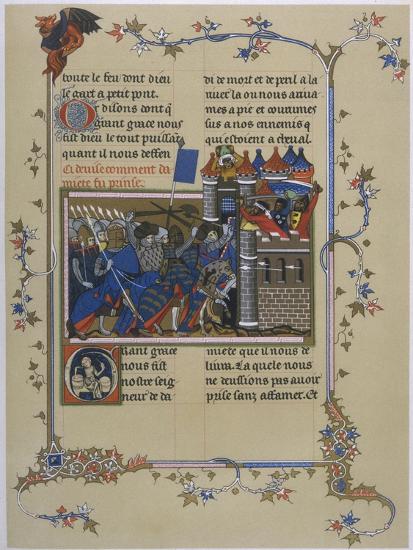 toute le feu dont dieu
le gart a petit pont.
Or disons dont q̃
grant grace nous
fist dieu le tout puissãt
quant il nous deffen
Ci deuise comment da
miete fu prinse.
di de mort et de peril a la
riuee la ou nous arriua
mes a pie et courumes
sus a nos ennemis
qui estoient a cheual.
Grant grace
nous fist
nostre seig
neur de da
miete que il nous de
liura. La quele nous
ne deussions pas auoir
prise sanz affamer. Et